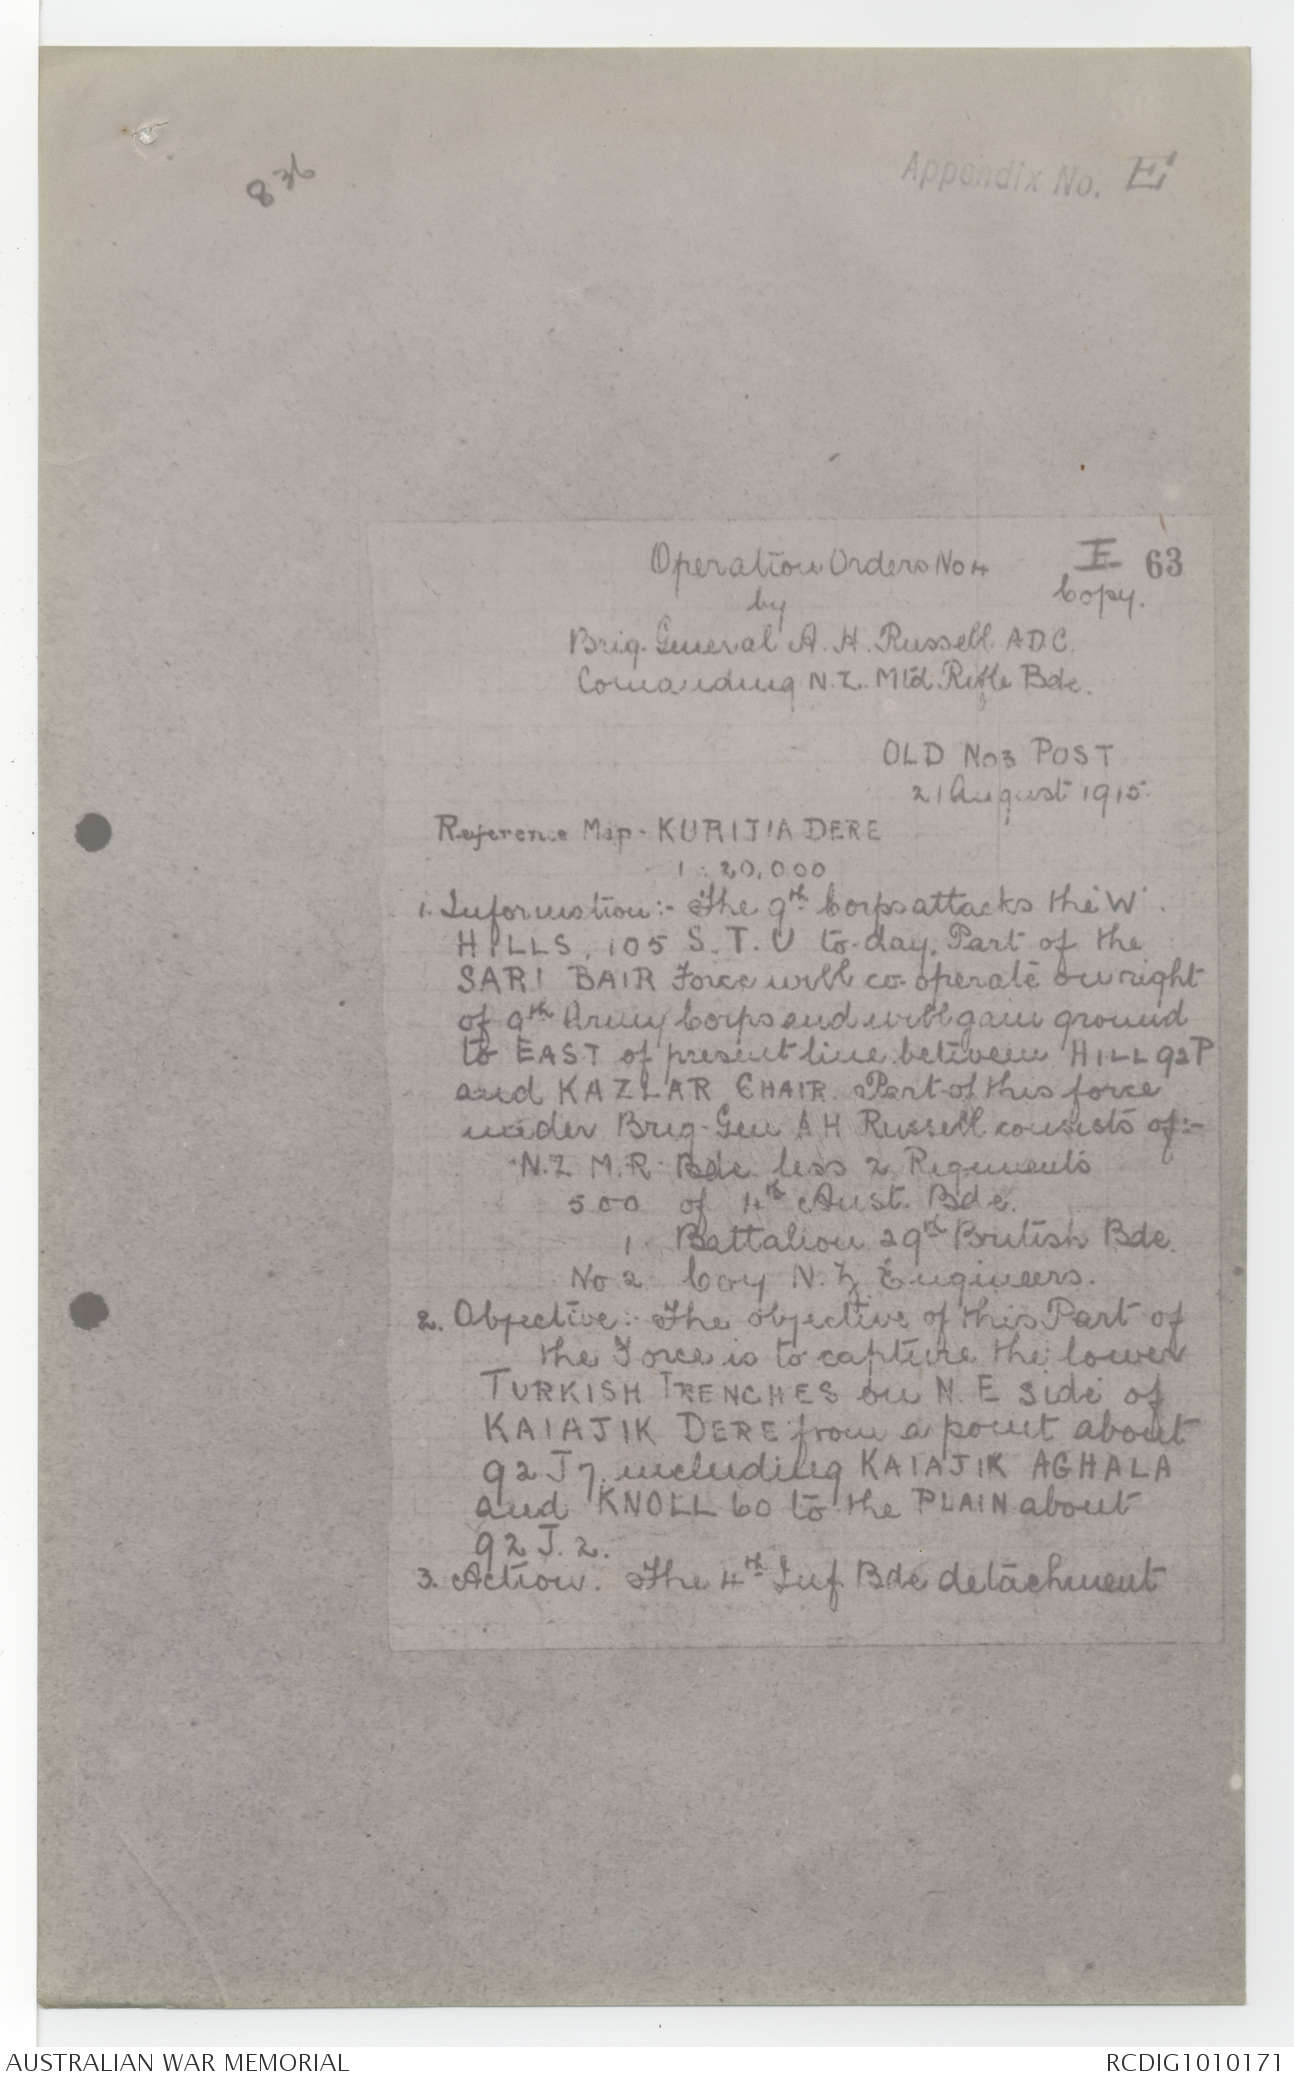 836
Appendix No. E
Operation Orders No 4
E 63
Copy.
by
Brig. General A. H. Russell. ADC.
Comanding N.Z. Mtd. Rifle Bde.
OLD No 3 POST
21 August 1915.
Reference Map - KURIJIA DERE
1 : 20,000
1. Information:- The 9th Corps attacks the 'W'
HILLS, 105 S. T. U to-day. Part of the
SARI BAIR Force will co-operate on right
of 9th Army Corps and will gain ground
to EAST of present line between HILL 92P
and KAZLAR CHAIR. Part of this force
under Brig-Gen A H Russell consists of:-
N.Z M.R. Bde less 2 Regiments
500 of 4th Aust. Bde.
1 Battalion 29th British Bde.
No 2 Coy N.Z Engineers.
2. Objective:- The objective of this Part of
the Force is to capture the lower
TURKISH TRENCHES on N.E side of
KAIAJIK DERE from a point about
92 J 7. including KAIAJIK AGHALA
and KNOLL 60 to the PLAIN about
92 J. 2.
3. Action. The 4th Inf Bde detachment
AUSTRALIAN WAR MEMORIAL
RCDIG1010171